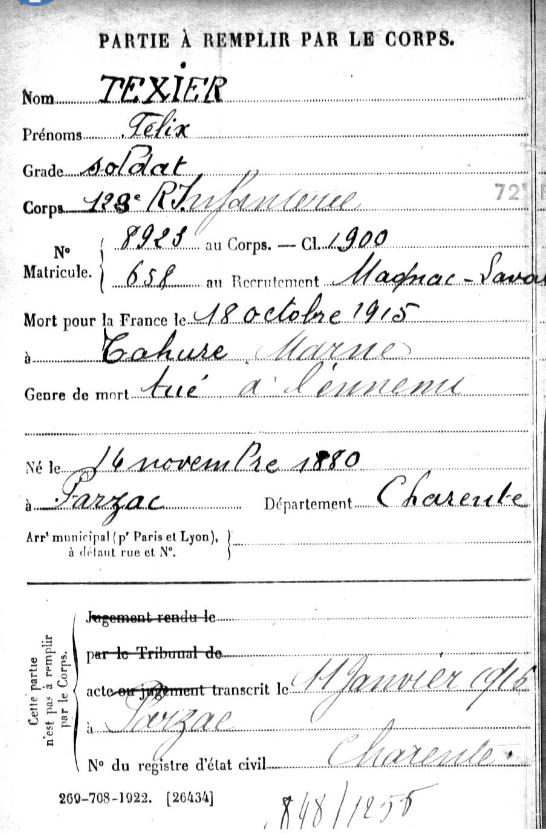 PARTIE À REMPLIR PAR LE CORPS.
Nom TEXIER
Prénoms Félix
Grade soldat
Corps 128e R. Infanterie 72e
N° Matricule. 8923 au Corps. — Cl. 1900
658 au Recrutement Magnac-Lava
Mort pour la France le 18 octobre 1915
à Tahure Marne
Genre de mort tué à l'ennemi
Né le 14 novembre 1880
à Parzac Département Charente
Arrt municipal (pr Paris et Lyon), à défaut rue et N°.
Cette partie n'est pas à remplir par le Corps.
Jugement rendu le
par le Tribunal de
acte ou jugement transcrit le 11 Janvier 1916
à Parzac
Charente.
N° du registre d'état civil
269-708-1922. [26434]
848/1255